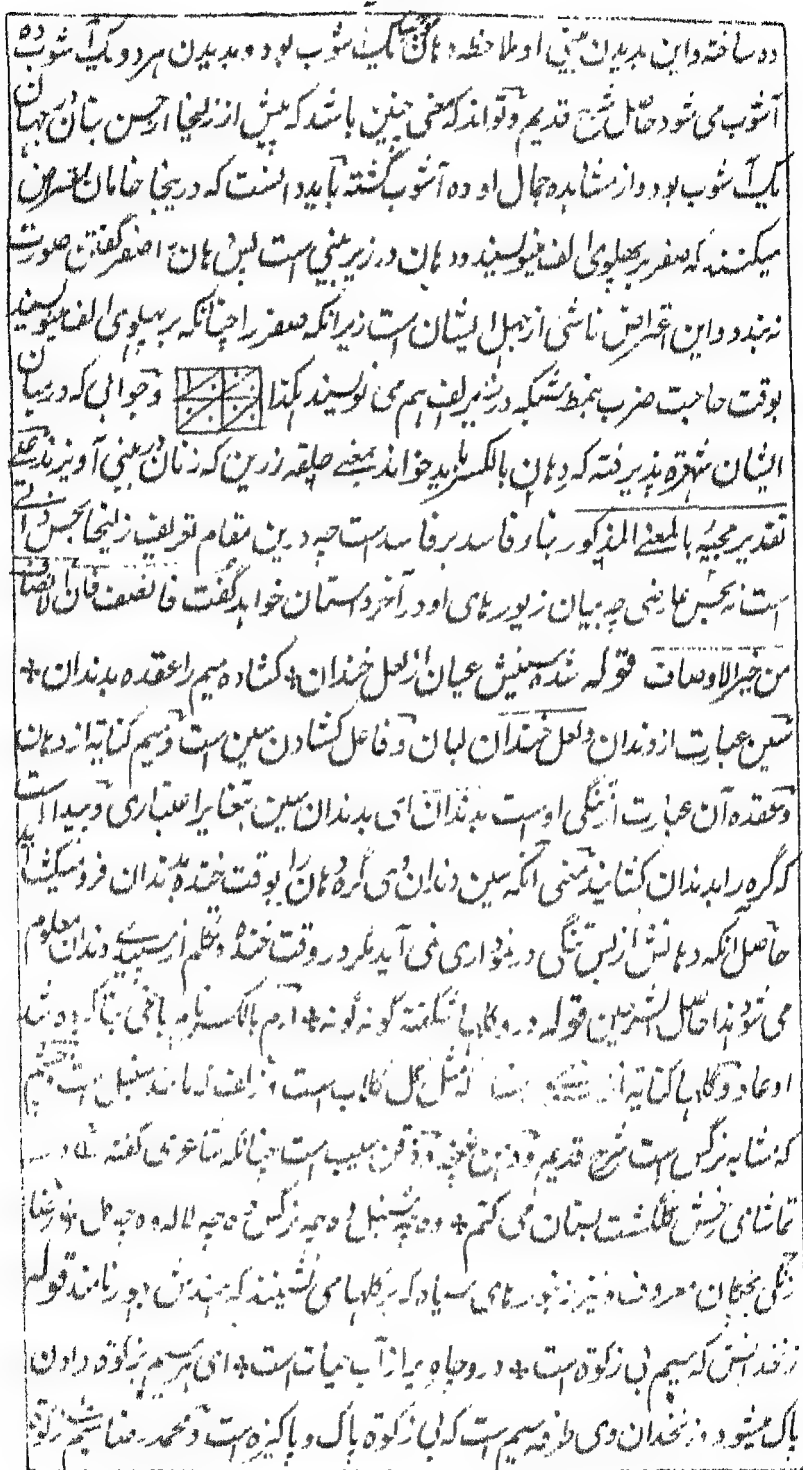 ده ساخته و این بدیدن بینی او ملاحظه دهان یک آشوب بود و بدیدن هر دو یک آشوب ده
آشوب می شود حاصل شرح قدیم و تواند که معنی چنین باشد که پیش از زلیخا از حسن بتان در جهان
یک آشوب بود و از مشاهده جمال او ده آشوب گشته باید دانست که درینجا خامان اعتراض
میکنند که صفر بر پهلوی الف مینویسند و دهان در زیر بینی است پس دهان را صفر گفتن صورت
نه بندد و این اعتراض ناشی از جهل ایشان است زیرا که صفر را چنانکه بر پهلوی الف مینویسند
بوقت حاجت ضرب بنمط شبکه در زیر الف هم می نویسند هکذا و جوابی که در میان
ایشان شهرة پذیرفته که دهان بالکسر باید خواند بمعنے حلقه زرین که زنان در بینی آویزند علے
تقدیر مجیئه بالمعنے المذکور بناء فاسد بر فاسد است چه درین مقام تعریف زلیخا بحسن ذاتے
است نه بحسن عارضی چه بیان زیورهای او در آخر داستان خواهد گفت فانصف فان الانصاف
من خیر الاوصاف قوله شده سینش عیان از لعل خندان + کشاده میم را عقده بدندان +
سین عبارت از دندان و لعل خندان لبان و فاعل کشادن سین است و میم کنایه از دهان
و عقده آن عبارت از تنگی اوست بدندان ای بدندان سین بتغایر اعتباری و پیدا است
که گره را بدندان کشایند معنی آنکه سین دندان وی گره دهان را بوقت خنده بدندان فرو میکشاید
حاصل آنکه دهانش از بس تنگی در نموداری نمی آید مگر در وقت خنده و تکلم از سپیدے دندان معلوم
می شود هذا حاصل الشرحین قوله درو گلها شگفته گونه گونه + ارم بالکسر نام باغی بنا کرده شد
او عاد و گلها کنایه از که مثل گل گلاب است و زلف که مانند سنبل است و چشم
که مشابه نرگس است شرح قدیم و دهن غنچه و ذقن سیب است چنانکه شاعری گفته
تماشای رخش گلگشت بستان می کنم + وه چه سنبل وه چه نرگس وه چه لاله وه چه گل
زنگی بچگان معروف و نیز زنبورهای سیاه که بر گلها می نشینند که بهندش بهور نامند قوله
زنخدانش که سیم بی زکوة است + درو چاه پر از آب حیات است + ای هر سیم بزکوة دادن
پاک میشود و زنخدان وی طرفه سیم است که بی زکوة پاک و پاکیزه است و محمد رضا سیم زکوة